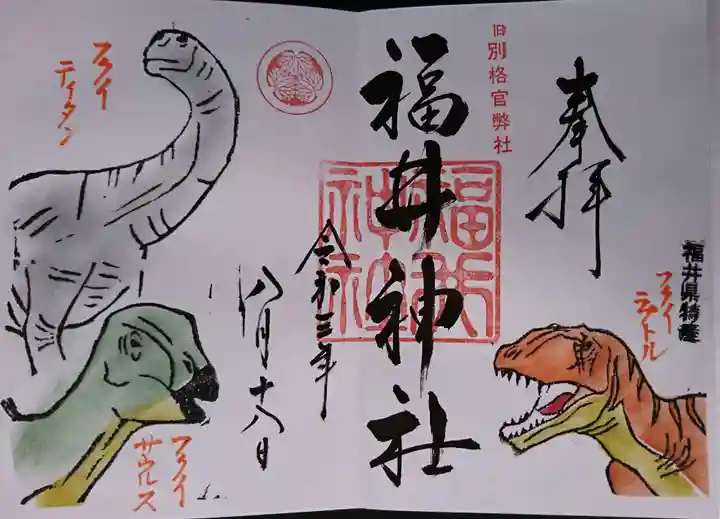 奉拝
旧別格官弊社
福井神社
福井神社
令和三年
八月十八日
福井県特産
フクイ
ラプトル
フクイ
ティタン
フクイ
サウルス